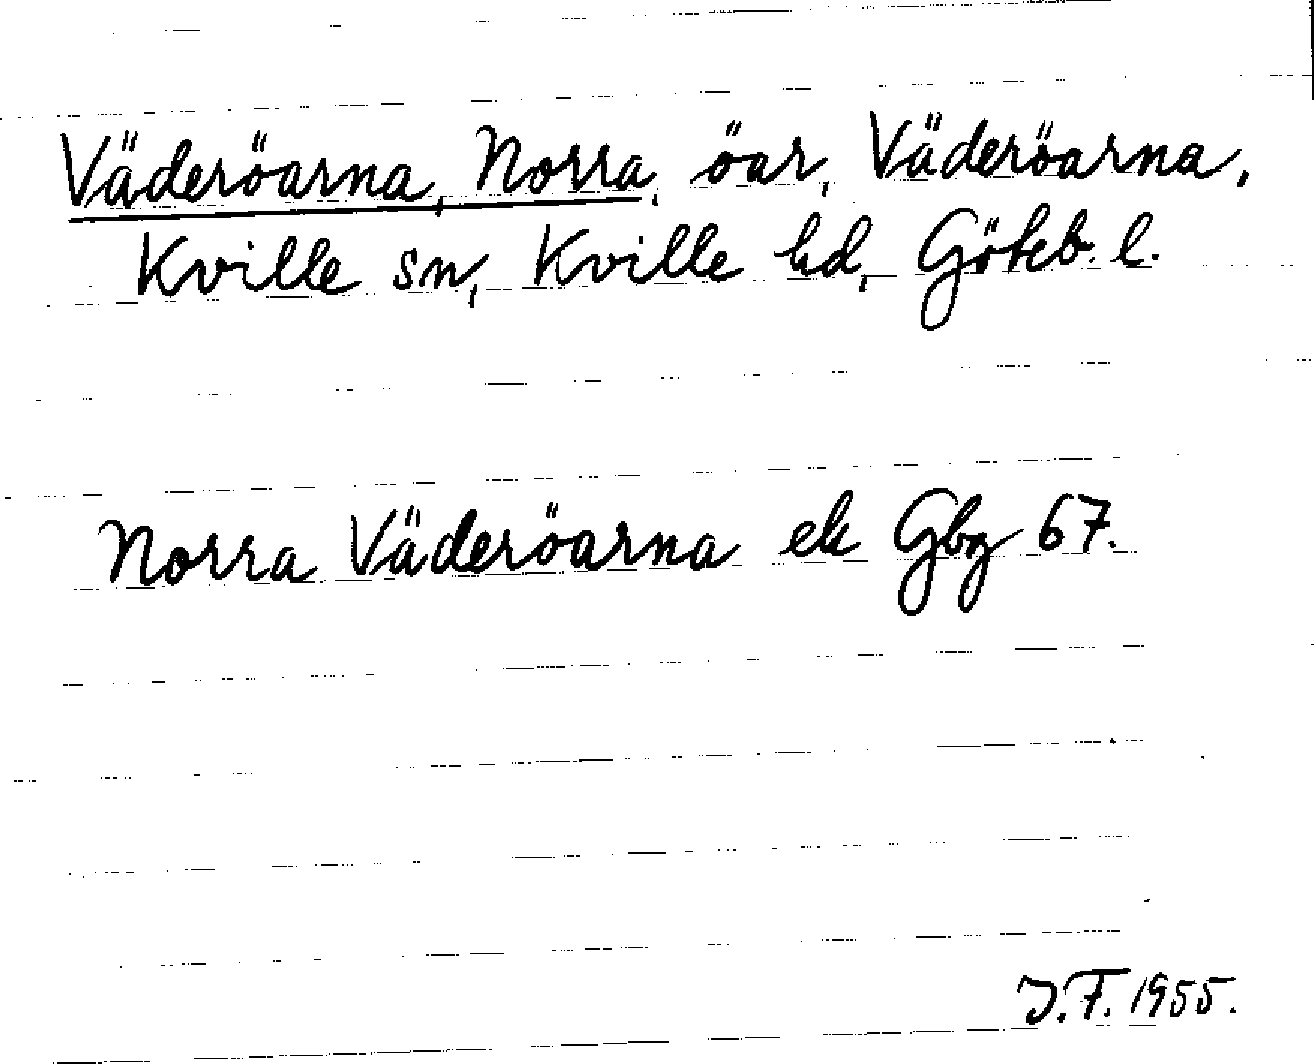 Väderöarna, Norra, öar, Väderöarna,
Kville sn, Kville hd, Göteb. l.
Norra Väderöarna ek Gbg 67.
J.F. 1955.